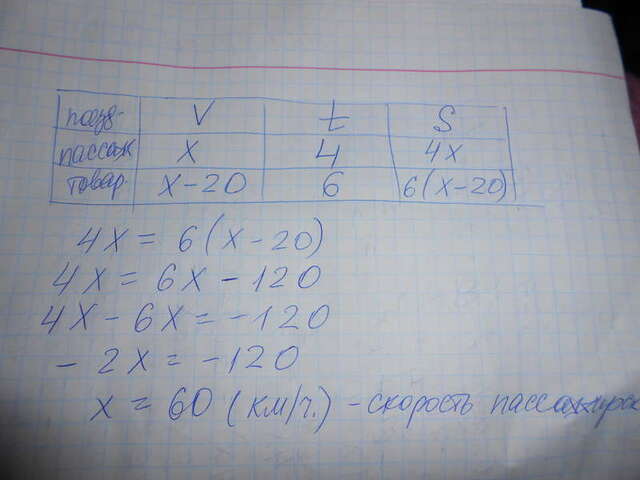 поезд. V t S
пассаж X 4 4X
товар. X-20 6 6(X-20)
4X = 6(X-20)
4X = 6X - 120
4X - 6X = -120
- 2X = -120
X = 60 (км/ч.) - скорость